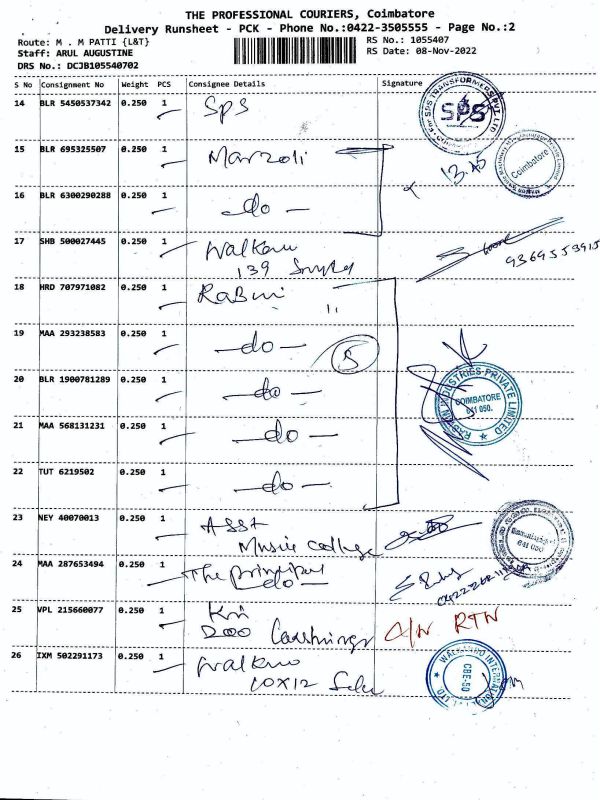 THE PROFESSIONAL COURIERS, Coimbatore
Delivery Runsheet - PCK - Phone No.:0422-3505555 - Page No.:2
Route: M . M PATTI {L&T}
RS No.: 1055407
Staff: ARUL AUGUSTINE
RS Date: 08-Nov-2022
DRS No.: DCJB105540702
S No Consignment No Weight PCS Consignee Details Signature
14 BLR 5450537342 0.250 1 SPS
SPS TRANSFORMERS PVT. LTD
SPS
15 BLR 695325507 0.250 1 Marzoli
13.45
Coimbatore
16 BLR 6300290288 0.250 1 — do —
17 SHB 500027445 0.250 1
139
9369553915
18 HRD 707971082 0.250 1 Rabwi "
19 MAA 293238583 0.250 1 — do — 5
20 BLR 1900781289 0.250 1 — do —
INDUSTRIES PRIVATE LIMITED
COIMBATORE
641 050.
21 MAA 568131231 0.250 1 — do —
22 TUT 6219502 0.250 1 — do —
23 NEY 40070013 0.250 1 Asst
Music college
641 050
24 MAA 287653494 0.250 1 The principal
do —
25 VPL 215660077 0.250 1 Kri
C/N RTN
26 IXM 502291173 0.250 1
10x12
CBE-50